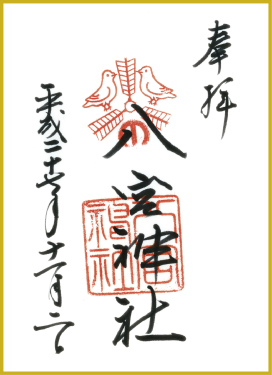 奉拝
八宮神社
平成二十七年十一月二日
八宮神社